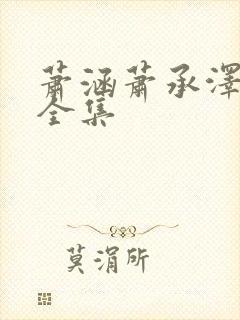 萧涵萧承泽
全集
莫涓所